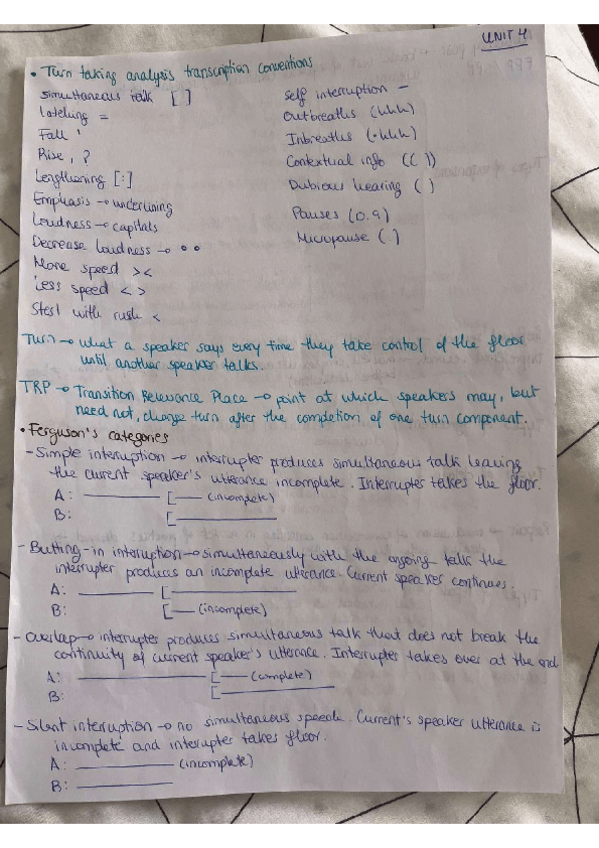 UNIT 4
• Turn taking analysis transcription conventions
Simultaneous talk [ ]
Latching =
Fall '
Rise , ?
Lengthening [:]
Emphasis → underlining
Loudness → capitals
Decrease loudness → ° °
More speed > <
Less speed < >
Start with rush <
Self interruption -
Outbreaths (hhh)
Inbreaths (·hhh)
Contextual info (( ))
Dubious hearing ( )
Pauses (0.9)
Micropause (.)
Turn → what a speaker says every time they take control of the floor
until another speaker talks.
TRP → Transition Relevance Place → point at which speakers may, but
need not, change turn after the completion of one turn component.
• Ferguson's categories
- Simple interruption → interrupter produces simultaneous talk leaving
the current speaker's utterance incomplete. Interrupter takes the floor.
A: ________ [___ (incomplete)
B: [________
- Butting-in interruption → simultaneously with the ongoing talk the
interrupter produces an incomplete utterance. Current speaker continues.
A: ________ [________
B: [___ (incomplete)
- Overlap → interrupter produces simultaneous talk that does not break the
continuity of current speaker's utterance. Interrupter takes over at the end
A: ________ [___ (complete)
B: [________
- Silent interruption → no simultaneous speech. Current's speaker utterance is
incomplete and interrupter takes floor.
A: ________ (incomplete)
B: ________